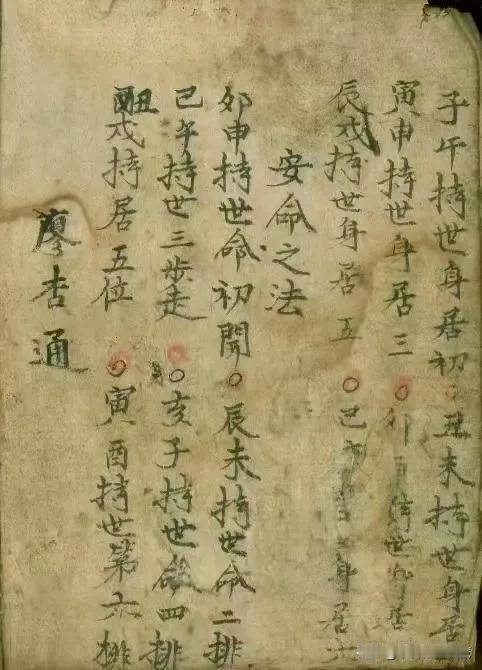 子午持世身居初。丑未持世身居
寅申持世身居三。卯酉持世身居
辰戌持世身居五。巳身居六
安命之法
卯申持世命初開。辰未持世命二排
巳午持世三歩走。亥子持世命四排
丑戌持居五位。寅酉持世第六排
廖杏通